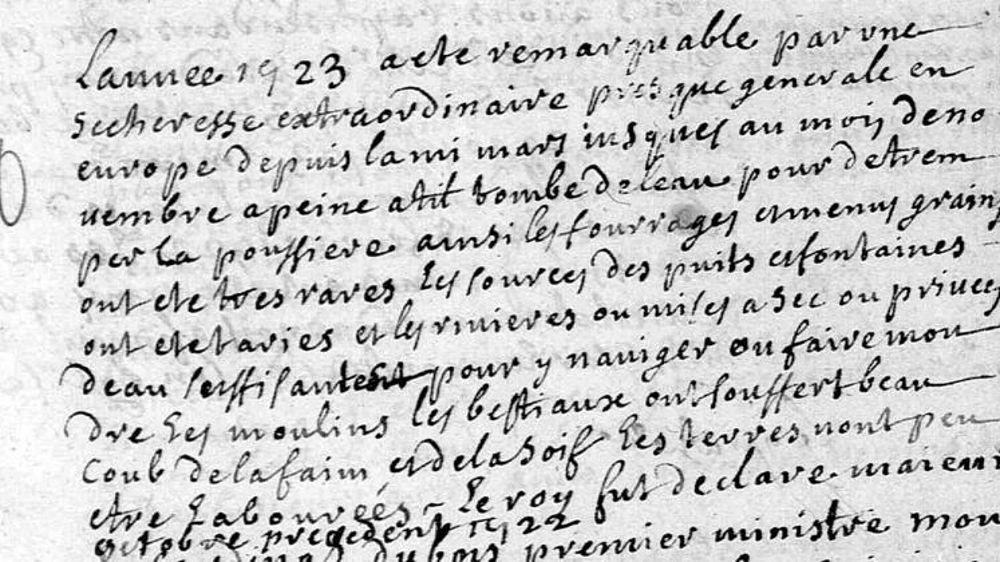 Lannee 1723 a ete remarquable par une
secheresse extraordinaire presque generale en
europe depuis la mi mars jusques au mois de no
uembre a peine atil tombe deleau pour detrem
per la poussiere ainsi les fourrages et menus grains
ont ete tres rares les sources des puits et fontaines
ont ete taries et les riuieres ou mises a sec ou priuees
deau suffisante pour y nauiger ou faire mou
dre les moulins les bestiaux ont souffert beau
coub de la faim et de la soif les terres nont peu
etre labourées Le roy fut declare maieur
octobre precedent 1722
dubois premier ministre mou